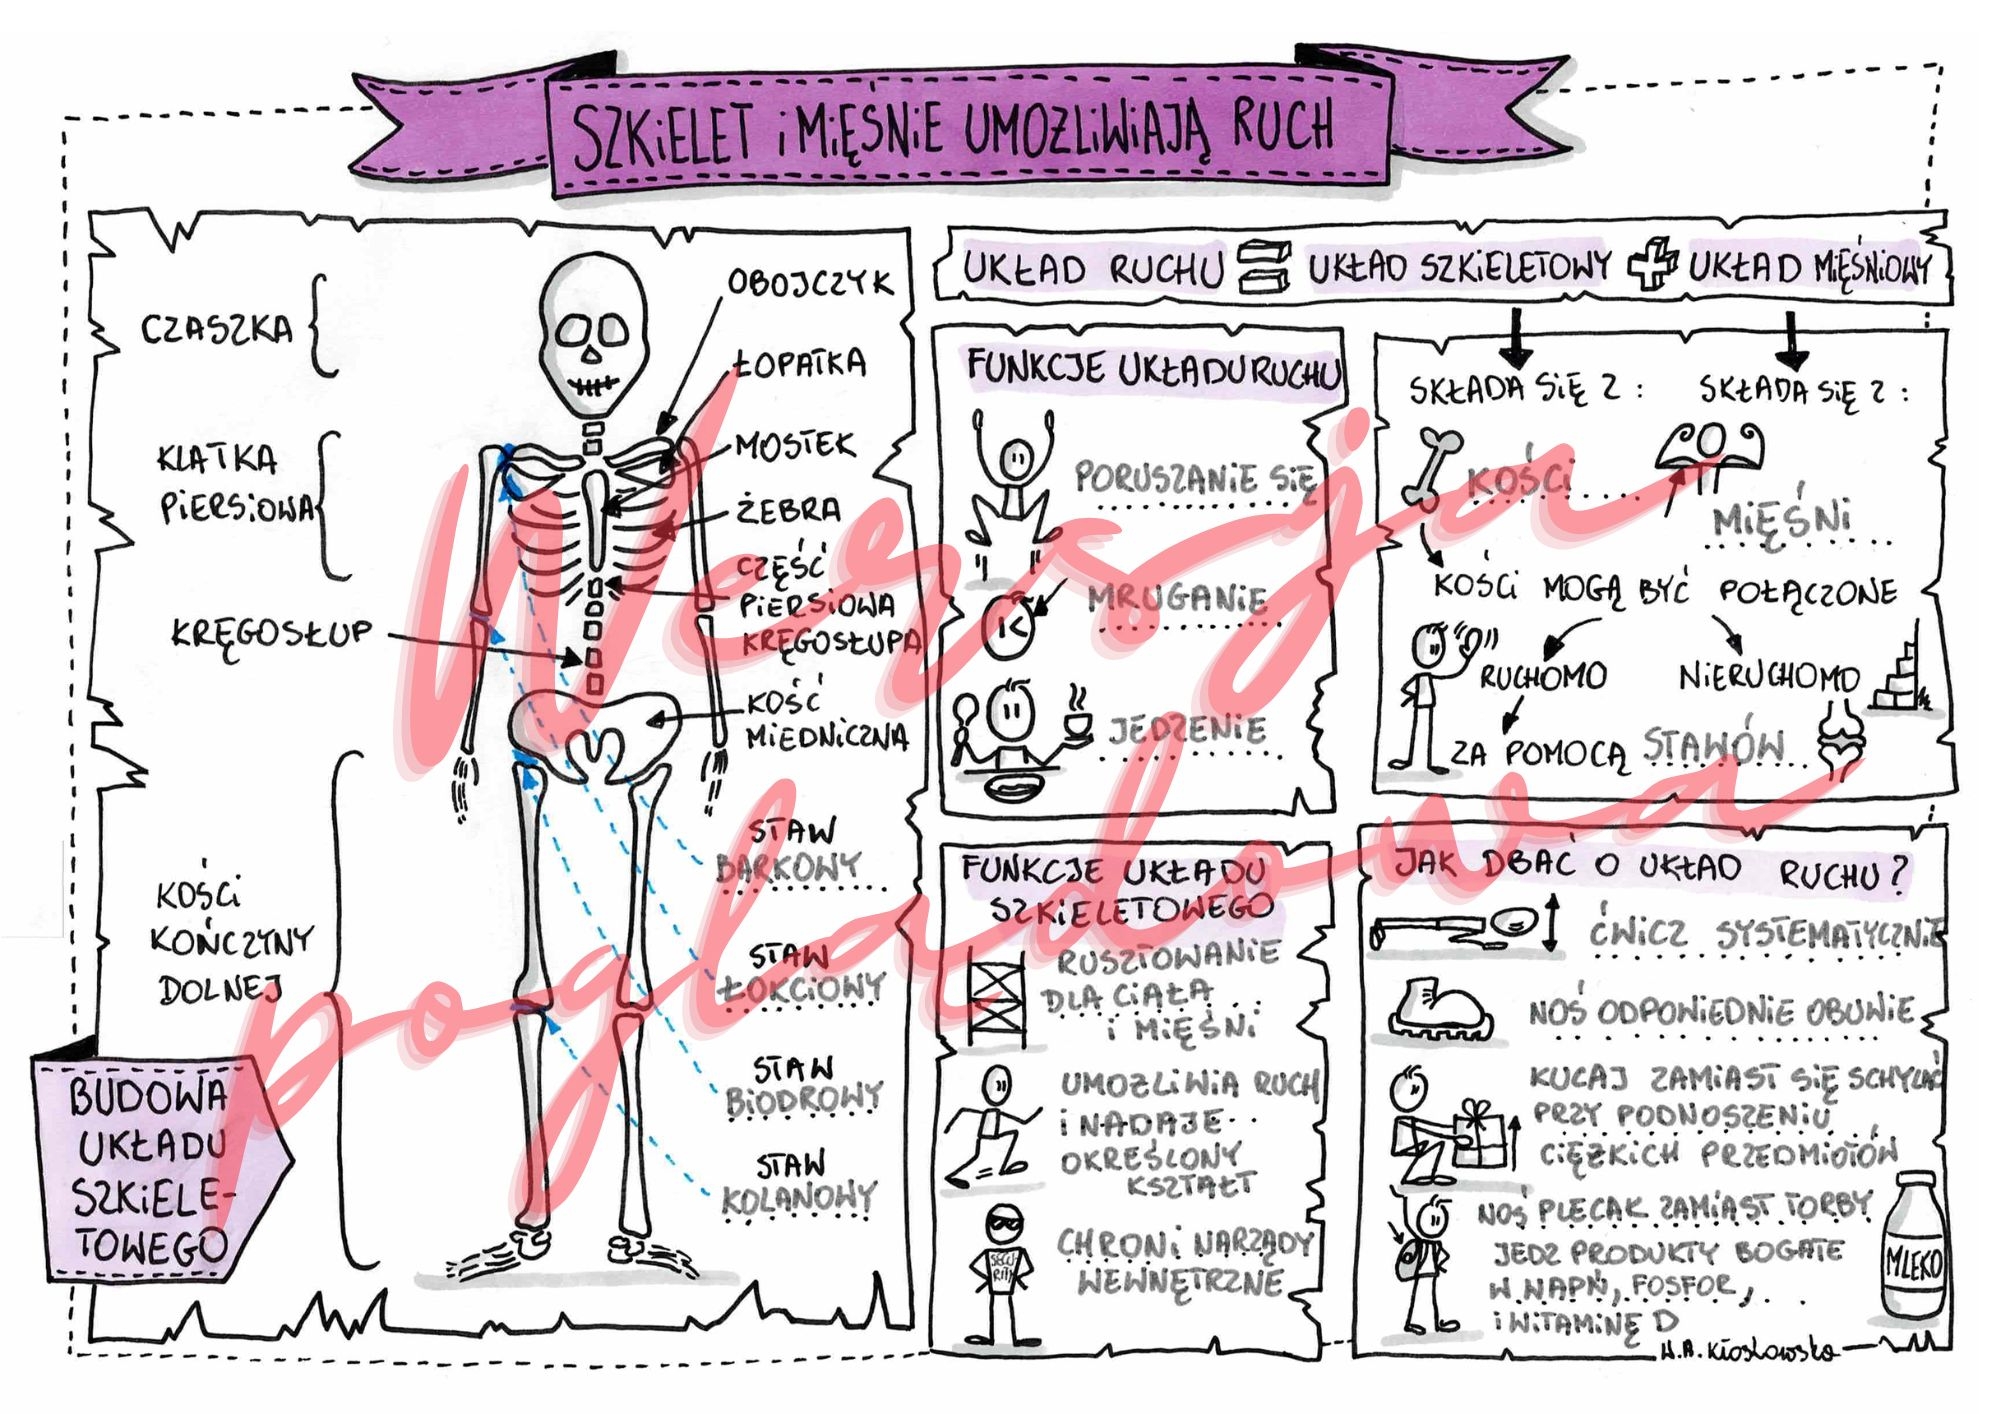 SZKiELET i MiĘŚNiE UMOŻLiWiAJĄ RUCH
CZASZKA
KLATKA
PiERSiOWA
KRĘGOSŁUP
KOŚCi
KOŃCZYNY
DOLNEJ
BUDOWA
UKŁADU
SZKiELE-
TOWEGO
OBOJCZYK
ŁOPATKA
MOSTEK
ŻEBRA
CZĘŚĆ
PiERSiOWA
KRĘGOSŁUPA
KOŚĆ
MiEDNiCZNA
STAW
BARKOWY
STAW
ŁOKCiOWY
STAW
BiODROWY
STAW
KOLANOWY
UKŁAD RUCHU = UKŁAD SZKiELETOWY + UKŁAD MiĘŚNiOWY
FUNKCJE UKŁADU RUCHU
PORUSZANiE SiĘ
MRUGANiE
JEDZENiE
SKŁADA SiĘ Z :
KOŚCi
SKŁADA SiĘ Z :
MiĘŚNi
KOŚCi MOGĄ BYĆ POŁĄCZONE
RUCHOMO
NiERUCHOMO
ZA POMOCĄ STAWÓW
FUNKCJE UKŁADU
SZKiELETOWEGO
RUSZTOWANiE
DLA CiAŁA
i MiĘŚNi
UMOŻLiWiA RUCH
i NADAJE
OKREŚLONY
KSZTAŁT
SECU
RITY
CHRONi NARZĄDY
WEWNĘTRZNE
JAK DBAĆ O UKŁAD RUCHU?
ĆWiCZ SYSTEMATYCZNiE
NOŚ ODPOWiEDNiE OBUWiE
KUCAJ ZAMiAST SiĘ SCHYLAĆ
PRZY PODNOSZENiU
CiĘŻKiCH PRZEDMiOTÓW
NOŚ PLECAK ZAMiAST TORBY
JEDZ PRODUKTY BOGATE
W WAPŃ, FOSFOR,
i WiTAMiNĘ D
MLEKO
H.A. Kłosłowska
Wersja
poglądowa